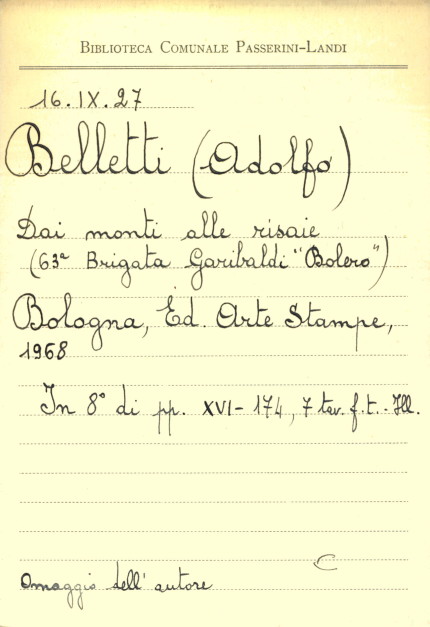 BIBLIOTECA COMUNALE PASSERINI-LANDI
16.IX.27
Belletti (Adolfo)
Dai monti alle risaie
(63ª Brigata Garibaldi "Bolero")
Bologna, Ed. Arte Stampe,
1968
In 8° di pp. XVI-174, 7 tav. f.t. - Ill.
C
Omaggio dell'autore